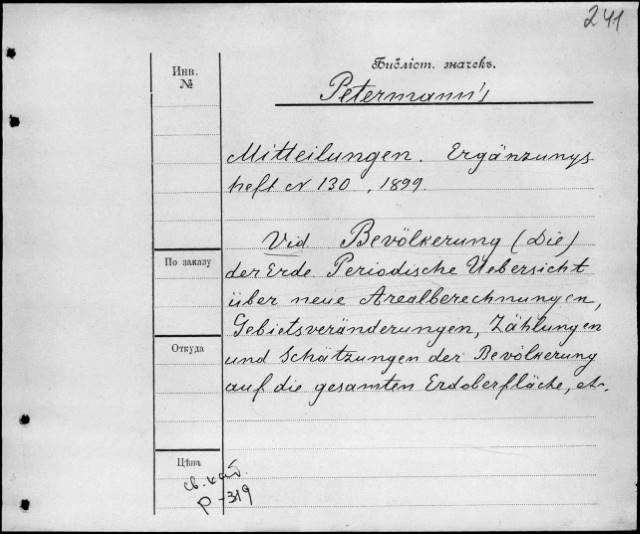 241
Инв.
№
Библіот. значекъ.
Petermann's
Mitteilungen. Ergänzungs
heft N 130, 1899.
Vid. Bevölkerung (Die)
der Erde. Periodische Uebersicht
über neue Arealberechnungen,
Gebietsveränderungen, Zählungen
und Schätzungen der Bevölkerung
auf die gesamten Erdoberfläche, etc.
По заказу
Откуда
Цѣна
св. каб.
р-319